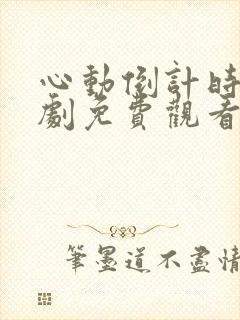 心動倒計時
劇免費觀看
筆墨道不盡情